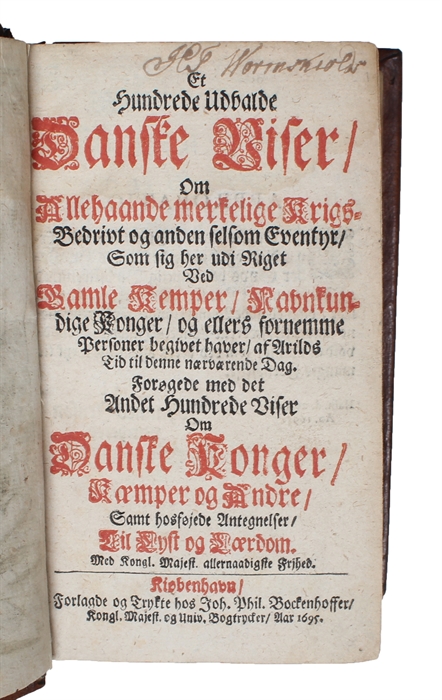 Et
Hundrede Udvalde
Danske Viser/
Om
Allehaande merkelige Krigs-
Bedrivt og anden selsom Eventyr/
Som sig her udi Riget
Ved
Gamle Kemper/ Navnkun-
dige Konger/ og ellers fornemme
Personer begivet haver/ af Arilds
Tid til denne nærværende Dag.
Forøgede med det
Andet Hundrede Viser
Om
Danske Konger/
Kæmper og Andre/
Samt hosføjede Antegnelser/
Til Lyst og Lærdom.
Med Kongl. Majest. allernaadigste Frjhed.
Kiøbenhavn/
Forlagde og Trykte hos Joh. Phil. Bockenhoffer/
Kongl. Majest. og Univ. Bogtrycker/ Aar 1695.